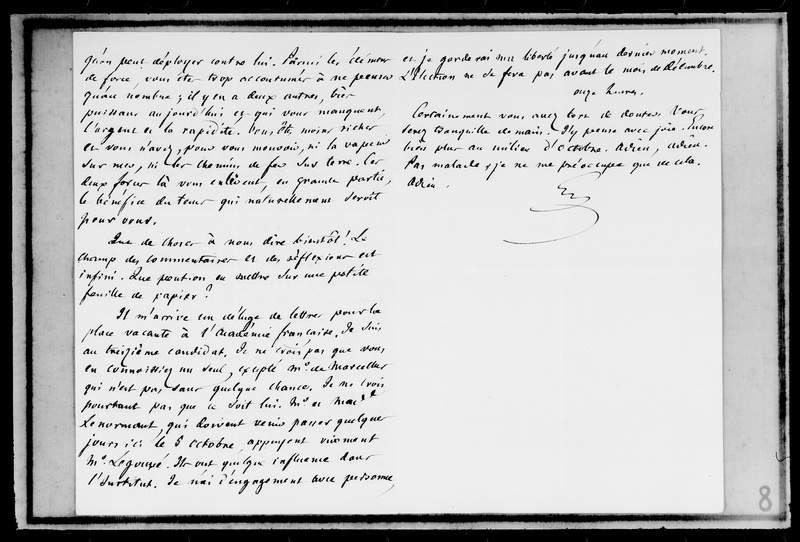 qu'on peut déployer contre lui. Parmi les élémens
de force, vous êtes trop accoutumés à ne penser
qu'au nombre ; il y en a deux autres, bien
puissans aujourd'hui et qui vous manquent,
l'argent et la rapidité. Vous êtes moins riches
et vous n'avez, pour vous mouvoir, ni la vapeur
sur mer, ni les chemins de fer sur terre. Ces
deux forces là vous enlèvent, en grande partie,
le bénéfice du tems qui naturellement seroit
pour vous.
Que de choses à nous dire bientôt ! Le
champ des commentaires et des réflexions est
infini. Que peut-on en mettre sur une petite
feuille de papier ?
Il m'arrive un déluge de lettres pour la
place vacante à l'Académie française. Je suis
au treizième candidat. Je ne crois pas que vous
en connoissiez un seul, excepté Mr. de Marcellus
qui n'est pas sans quelque chance. Je ne crois
pourtant pas que ce soit lui. Mr. et Made
Lenormant, qui doivent venir passer quelques
jours ici le 5 octobre, appuyent vivement
Mr. Légouvé. Ils ont quelque influence dans
l'Institut. Je n'ai d'engagement avec personne,
et je garderai ma liberté jusqu'au dernier moment.
L'élection ne se fera pas avant le mois de Décembre.
onze heures.
Certainement vous avez tort de douter. Vous
serez tranquille demain. J'y pense avec joie. Encore
bien plus au milieu d'octobre. Adieu, adieu.
Pas malade ; je ne me préoccupe que de cela.
Adieu.
8